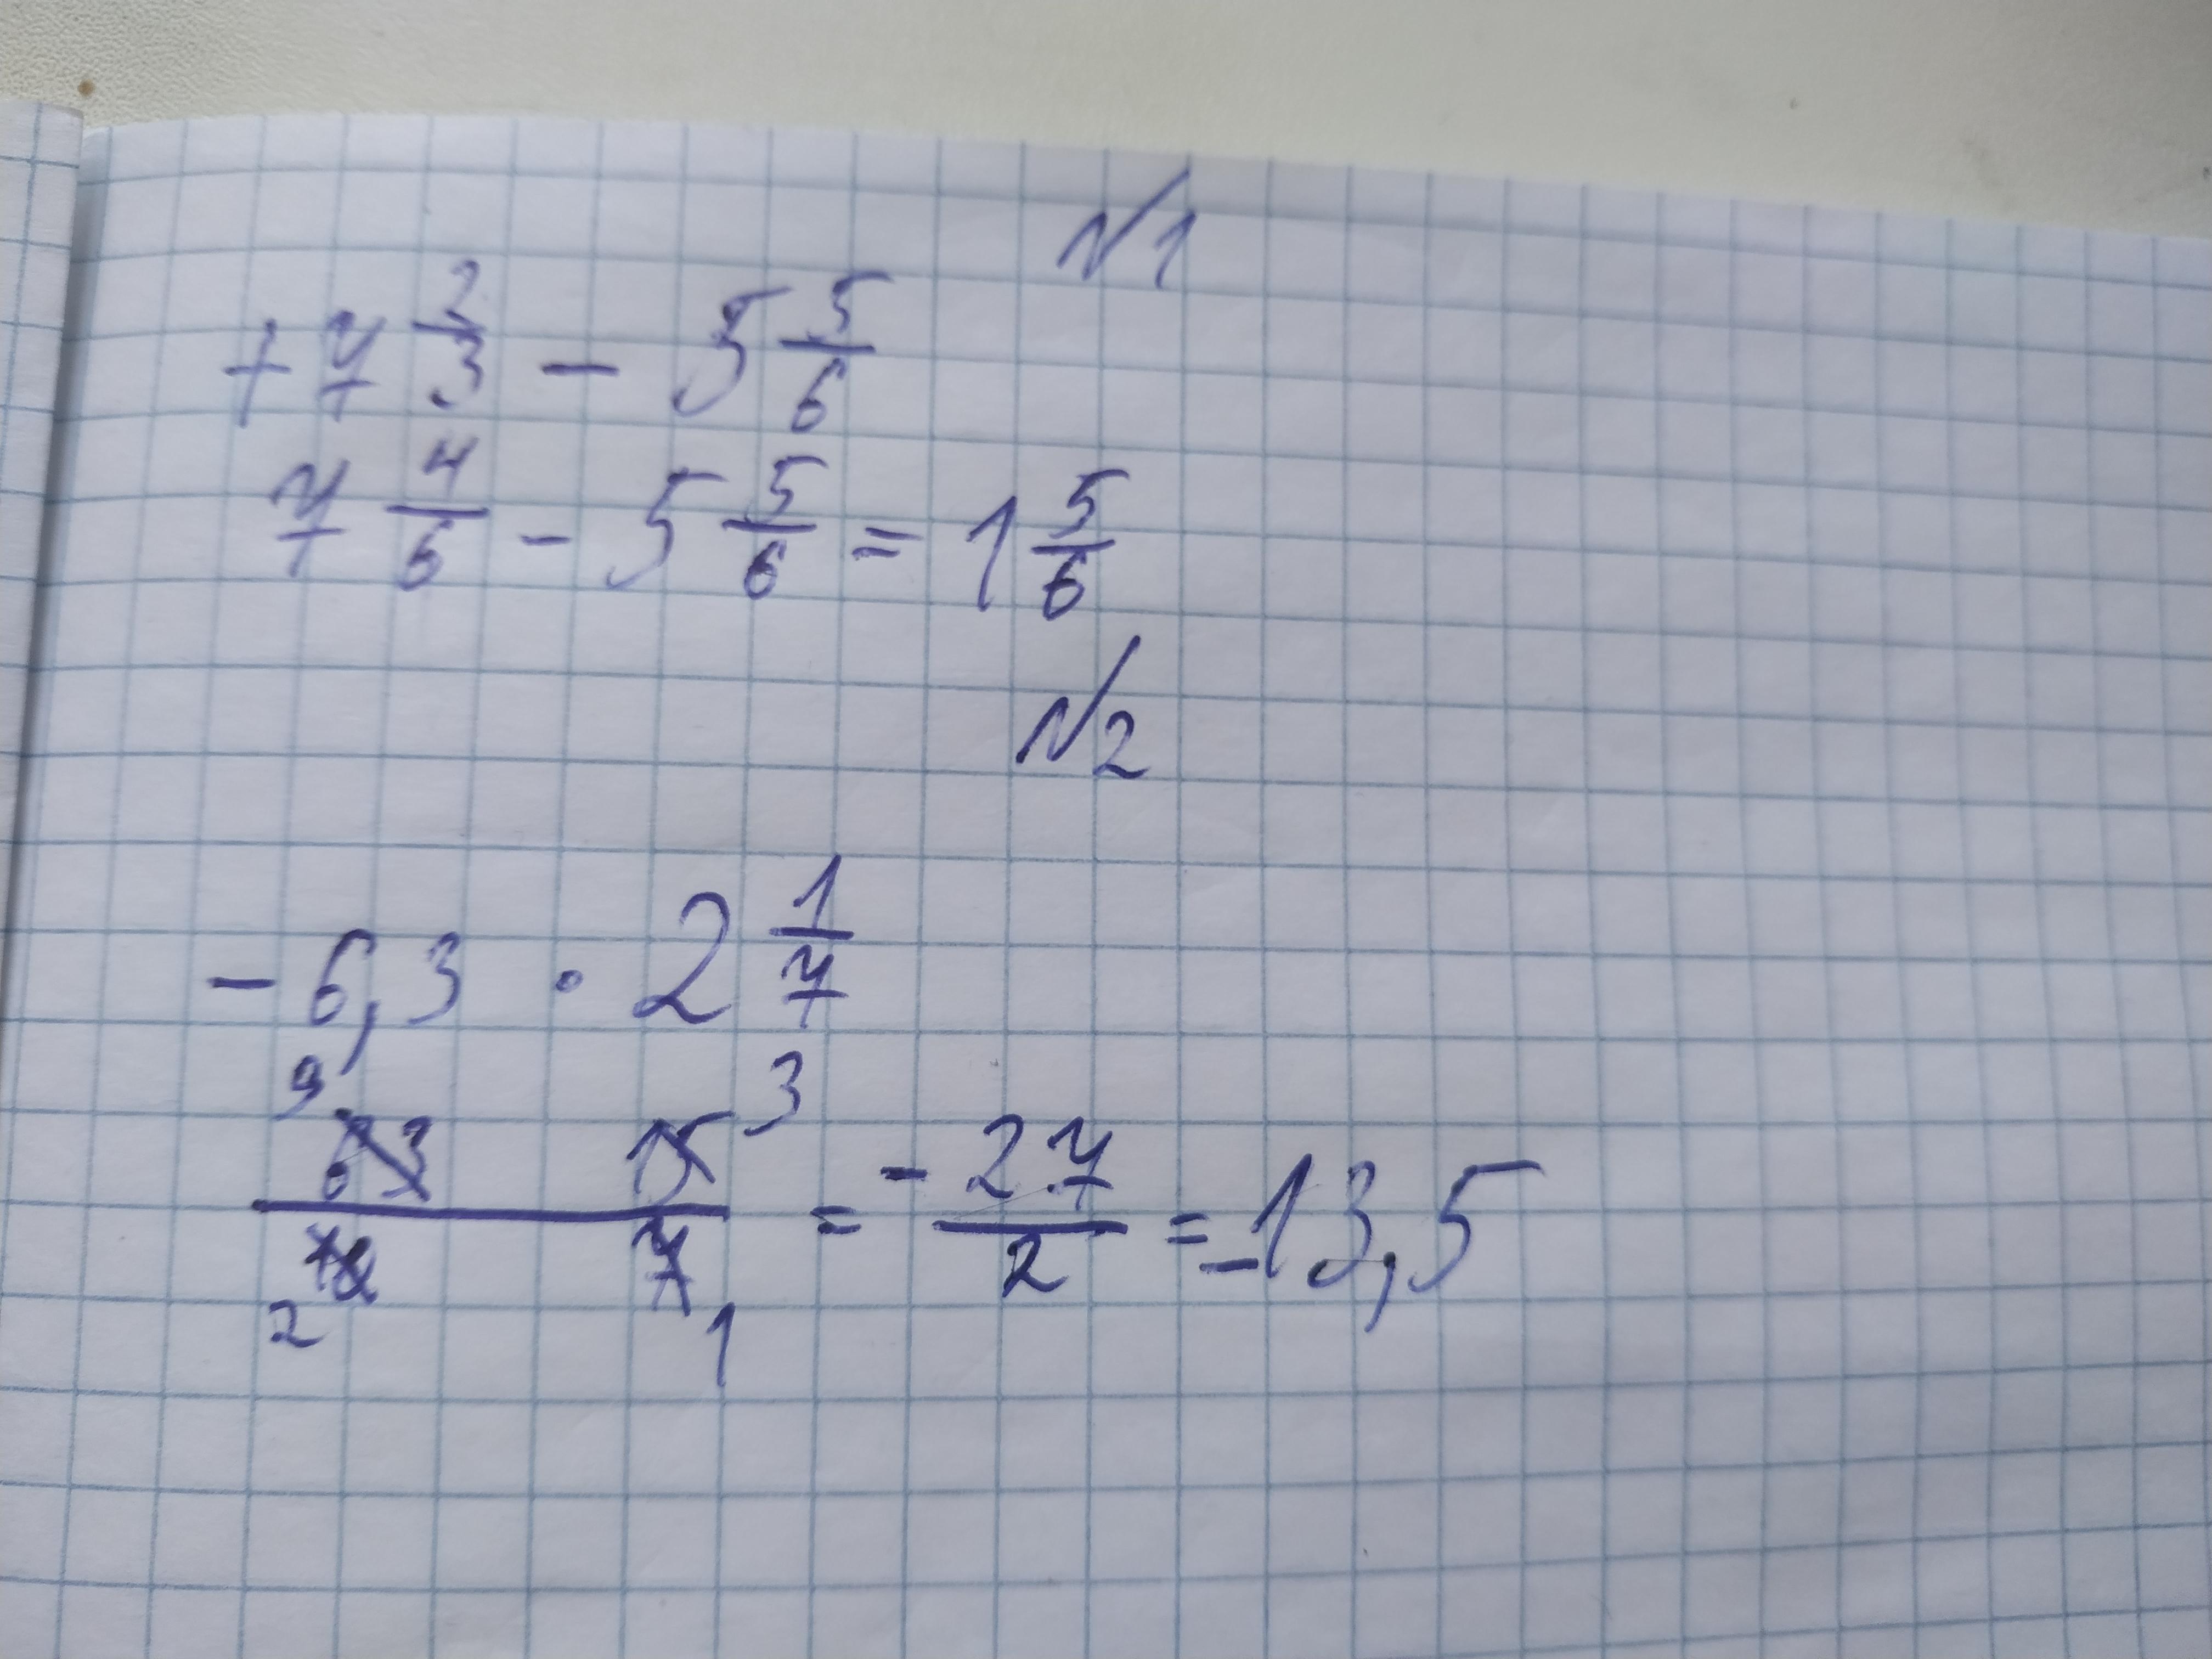 №1
+7 2/3 - 5 5/6
7 4/6 - 5 5/6 = 1 5/6
№2
-6,3 · 2 1/7
9 3
63 15 / 10 7 = - 27/2 = -13,5
2 1